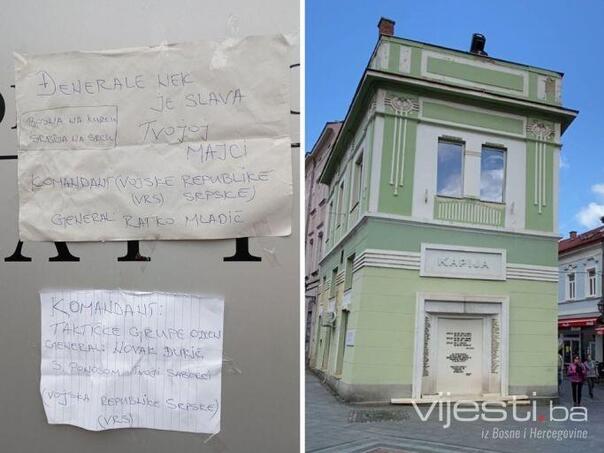 ĐENERALE NEK
JE SLAVA
BOSNA NA KURCU
SRBIJA NA SRCU
TVOJOJ
MAJCI
KOMANDANT (VOJSKE REPUBLIKE
(VRS) SRPSKE)
GENERAL RATKO MLADIĆ
KOMANDANT:
TAKTIČKE GRUPE OZREN
GENERAL: NOVAK ĐUKIĆ
S PONOSOM TVOJI SABORCI
(VOJSKA REPUBLIKE SRPSKE)
(VRS)
KAPIJA
vijesti.ba
iz Bosne i Hercegovine